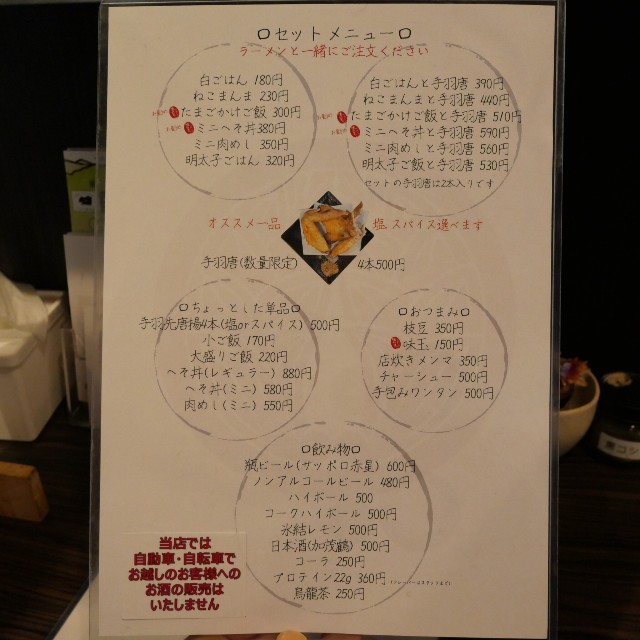 セットメニュー
ラーメンと一緒にご注文ください
白ごはん 180円
ねこまんま 230円
たまごかけご飯 300円
ミニへそ丼380円
ミニ肉めし 350円
明太子ごはん 320円
白ごはんと手羽唐 390円
ねこまんまと手羽唐 440円
たまごかけご飯と手羽唐 510円
ミニへそ丼と手羽唐 590円
ミニ肉めしと手羽唐 560円
明太子ご飯と手羽唐 530円
セットの手羽唐は2本入りです
オススメ一品
塩、スパイス選べます
手羽唐(数量限定) 4本500円
ちょっとした単品
手羽先唐揚4本(塩orスパイス) 500円
小ご飯 170円
大盛りご飯 220円
へそ丼(レギュラー) 880円
へそ丼(ミニ) 580円
肉めし(ミニ) 550円
おつまみ
枝豆 350円
味玉 150円
店炊きメンマ 350円
チャーシュー 500円
手包みワンタン 500円
飲み物
瓶ビール(サッポロ赤星) 600円
ノンアルコールビール 480円
ハイボール 500
コークハイボール 500円
氷結レモン 500円
日本酒(加茂鶴) 500円
コーラ 250円
プロテイン22g 360円
烏龍茶 250円
当店では
自動車・自転車で
お越しのお客様への
お酒の販売は
いたしません